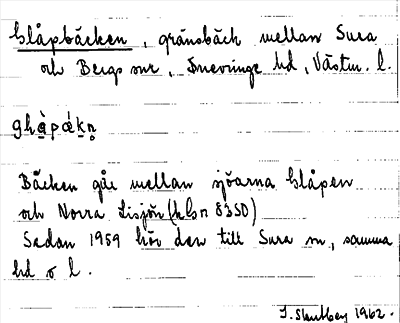 Glåpbäcken, gränsbäck mellan Sura
och Bergs snr, Snevringe hd, Västm. l.
Bäcken går mellan sjöarna Glåpen
och Norra Lisjön (kbn 8350)
Sedan 1959 hör den till Sura sn, samma
hd o l.
1962.